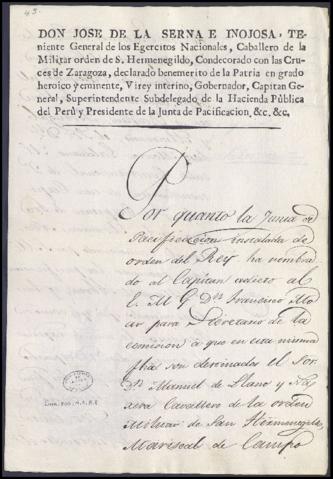 49.
DON JOSE DE LA SERNA E INOJOSA, TE-
niente General de los Egercitos Nacionales, Caballero de la
Militar orden de S. Hermenegildo, Condecorado con las Cru-
ces de Zaragoza, declarado benemerito de la Patria en grado
heroico y eminente, Virey interino, Gobernador, Capitan Ge-
neral, Superintendente Subdelegado de la Hacienda Pública
del Perú y Presidente de la Junta de Pacificacion, &c. &c.
Por quanto la Junta de
Pacificacion instalada de
orden del Rey ha nombra
do al Capitan adicto al
E. M. G. Dn. Francisco Mo
ar para Secretario de la
comision á que en esta misma
fha son destinados el Sor.
Dn. Manuel de Llano y
Cavallero de la orden
Militar de San Hermenegildo
Mariscal de Campo